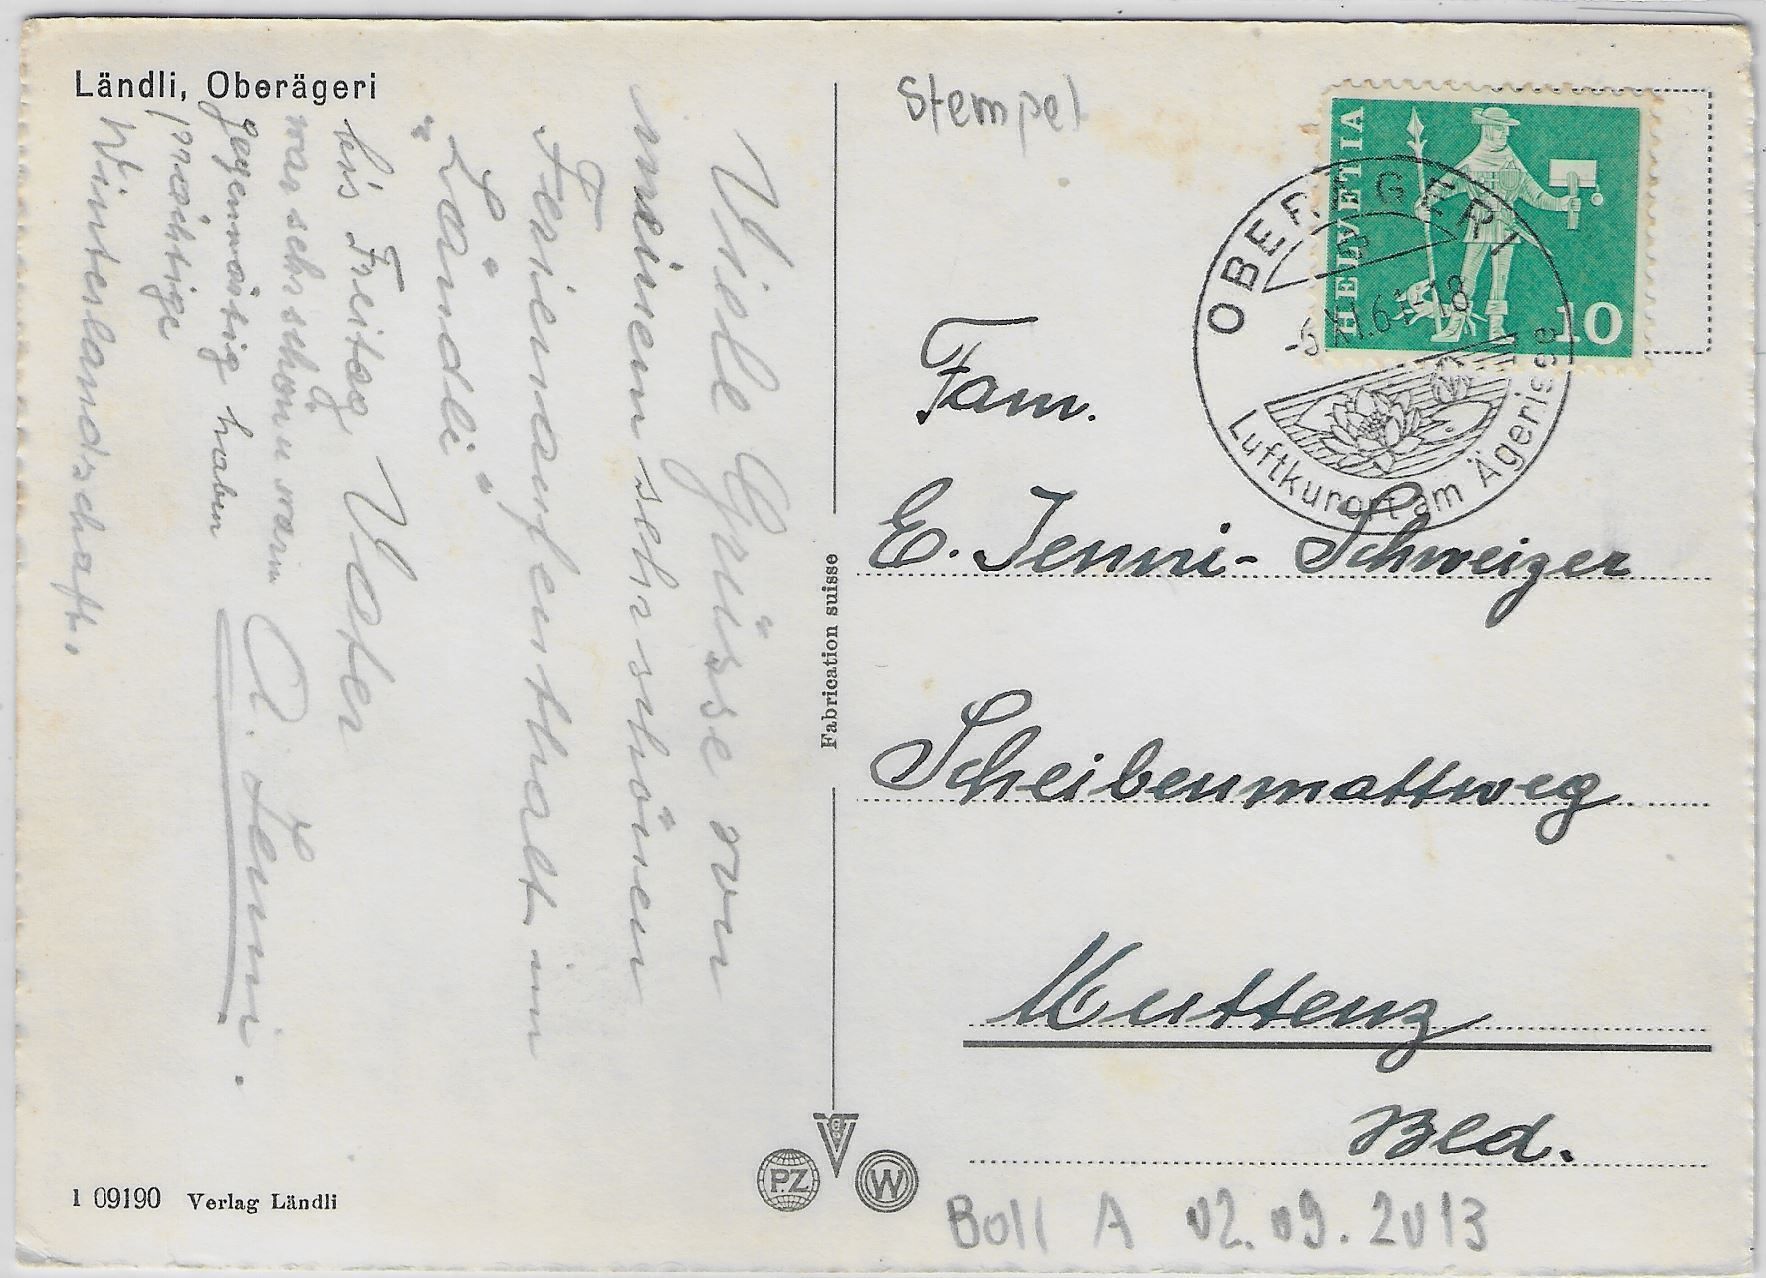 Ländli, Oberägeri
Viele Grüsse von
meinem sehr schönen
Ferienaufenthalt im
"Ländli"
bis Freitag. Vater
war sehr schön warm
A. Jenni.
gegenwärtig haben
prächtige
Winterlandschaft.
1 09190 Verlag Ländli
Fabrication suisse
PZ
W
Stempel
HELVETIA
10
OBERÄGERI
-5.XI.64-18
Luftkurort am Ägerisee
Fam.
E. Jenni-Schweizer
Scheibenmattweg
Muttenz
Bld.
Boll A 02.09.2013